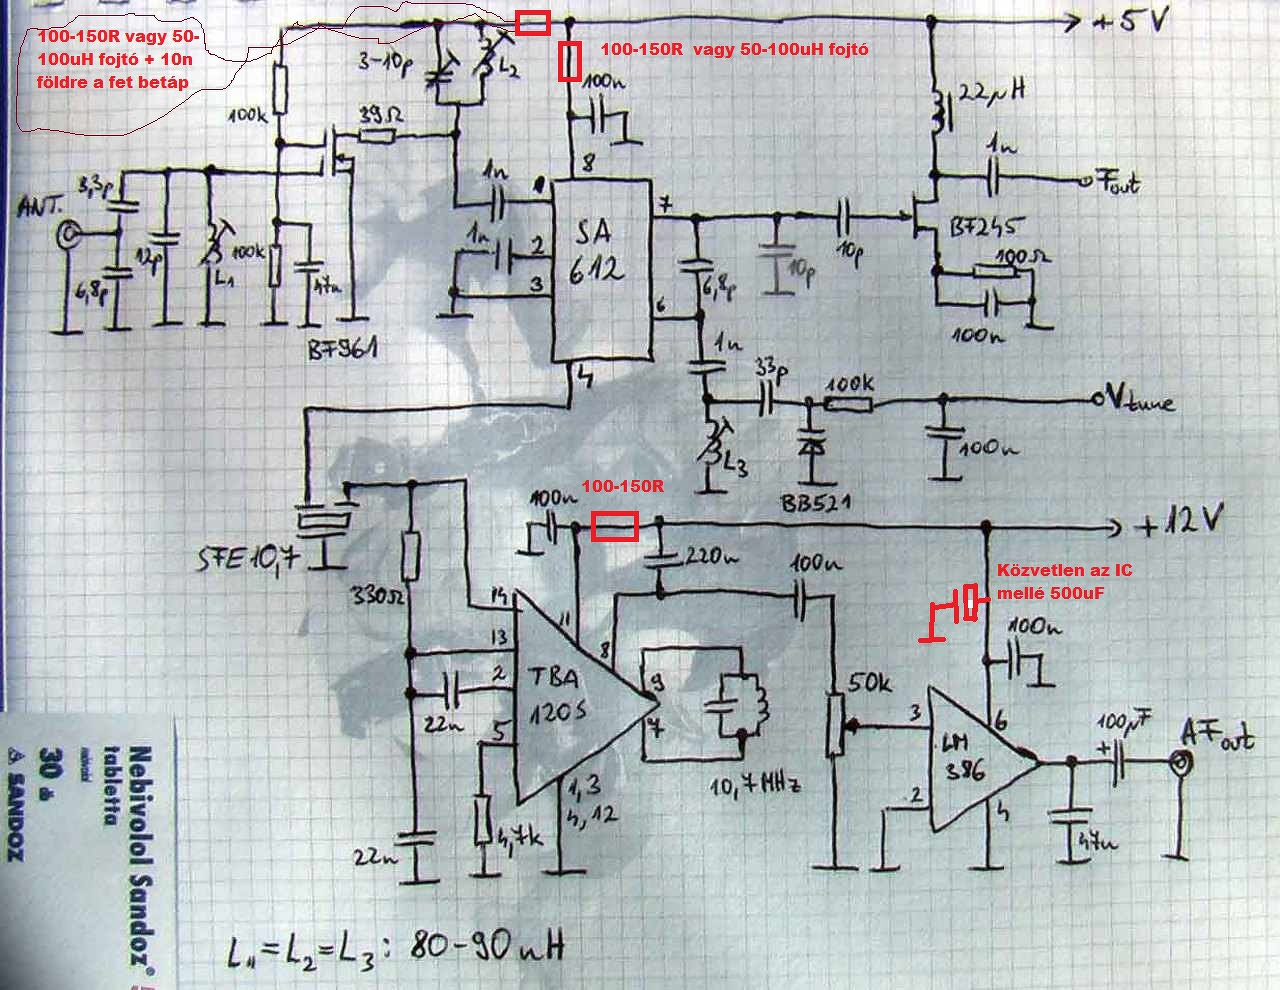 100-150R vagy 50-
100uH fojtó + 10n
földre a fet betáp
100-150R vagy 50-100uH fojtó
+5V
3-10p
L2
100n
100k
39Ω
22µH
1n
Fout
8
ANT.
3,3p
6,8p
12p
L1
100k
47n
BF961
1n
1n
2
3
SA
612
7
6
4
6,8p
10p
10p
BF245
100Ω
100n
1n
33p
100k
Vtune
L3
BB521
100n
SFE10,7
330Ω
100n
100-150R
+12V
220n
100n
Közvetlen az IC
mellé 500uF
100n
14
13
2
5
11
8
9
7
TBA
120S
1,3
4,12
22n
22n
4,7k
10,7MHz
50k
3
2
6
4
LM
386
100µF
+
AFout
47n
L1=L2=L3: 80-90nH
Nebivolol Sandoz®
tabletta
30 db
SANDOZ